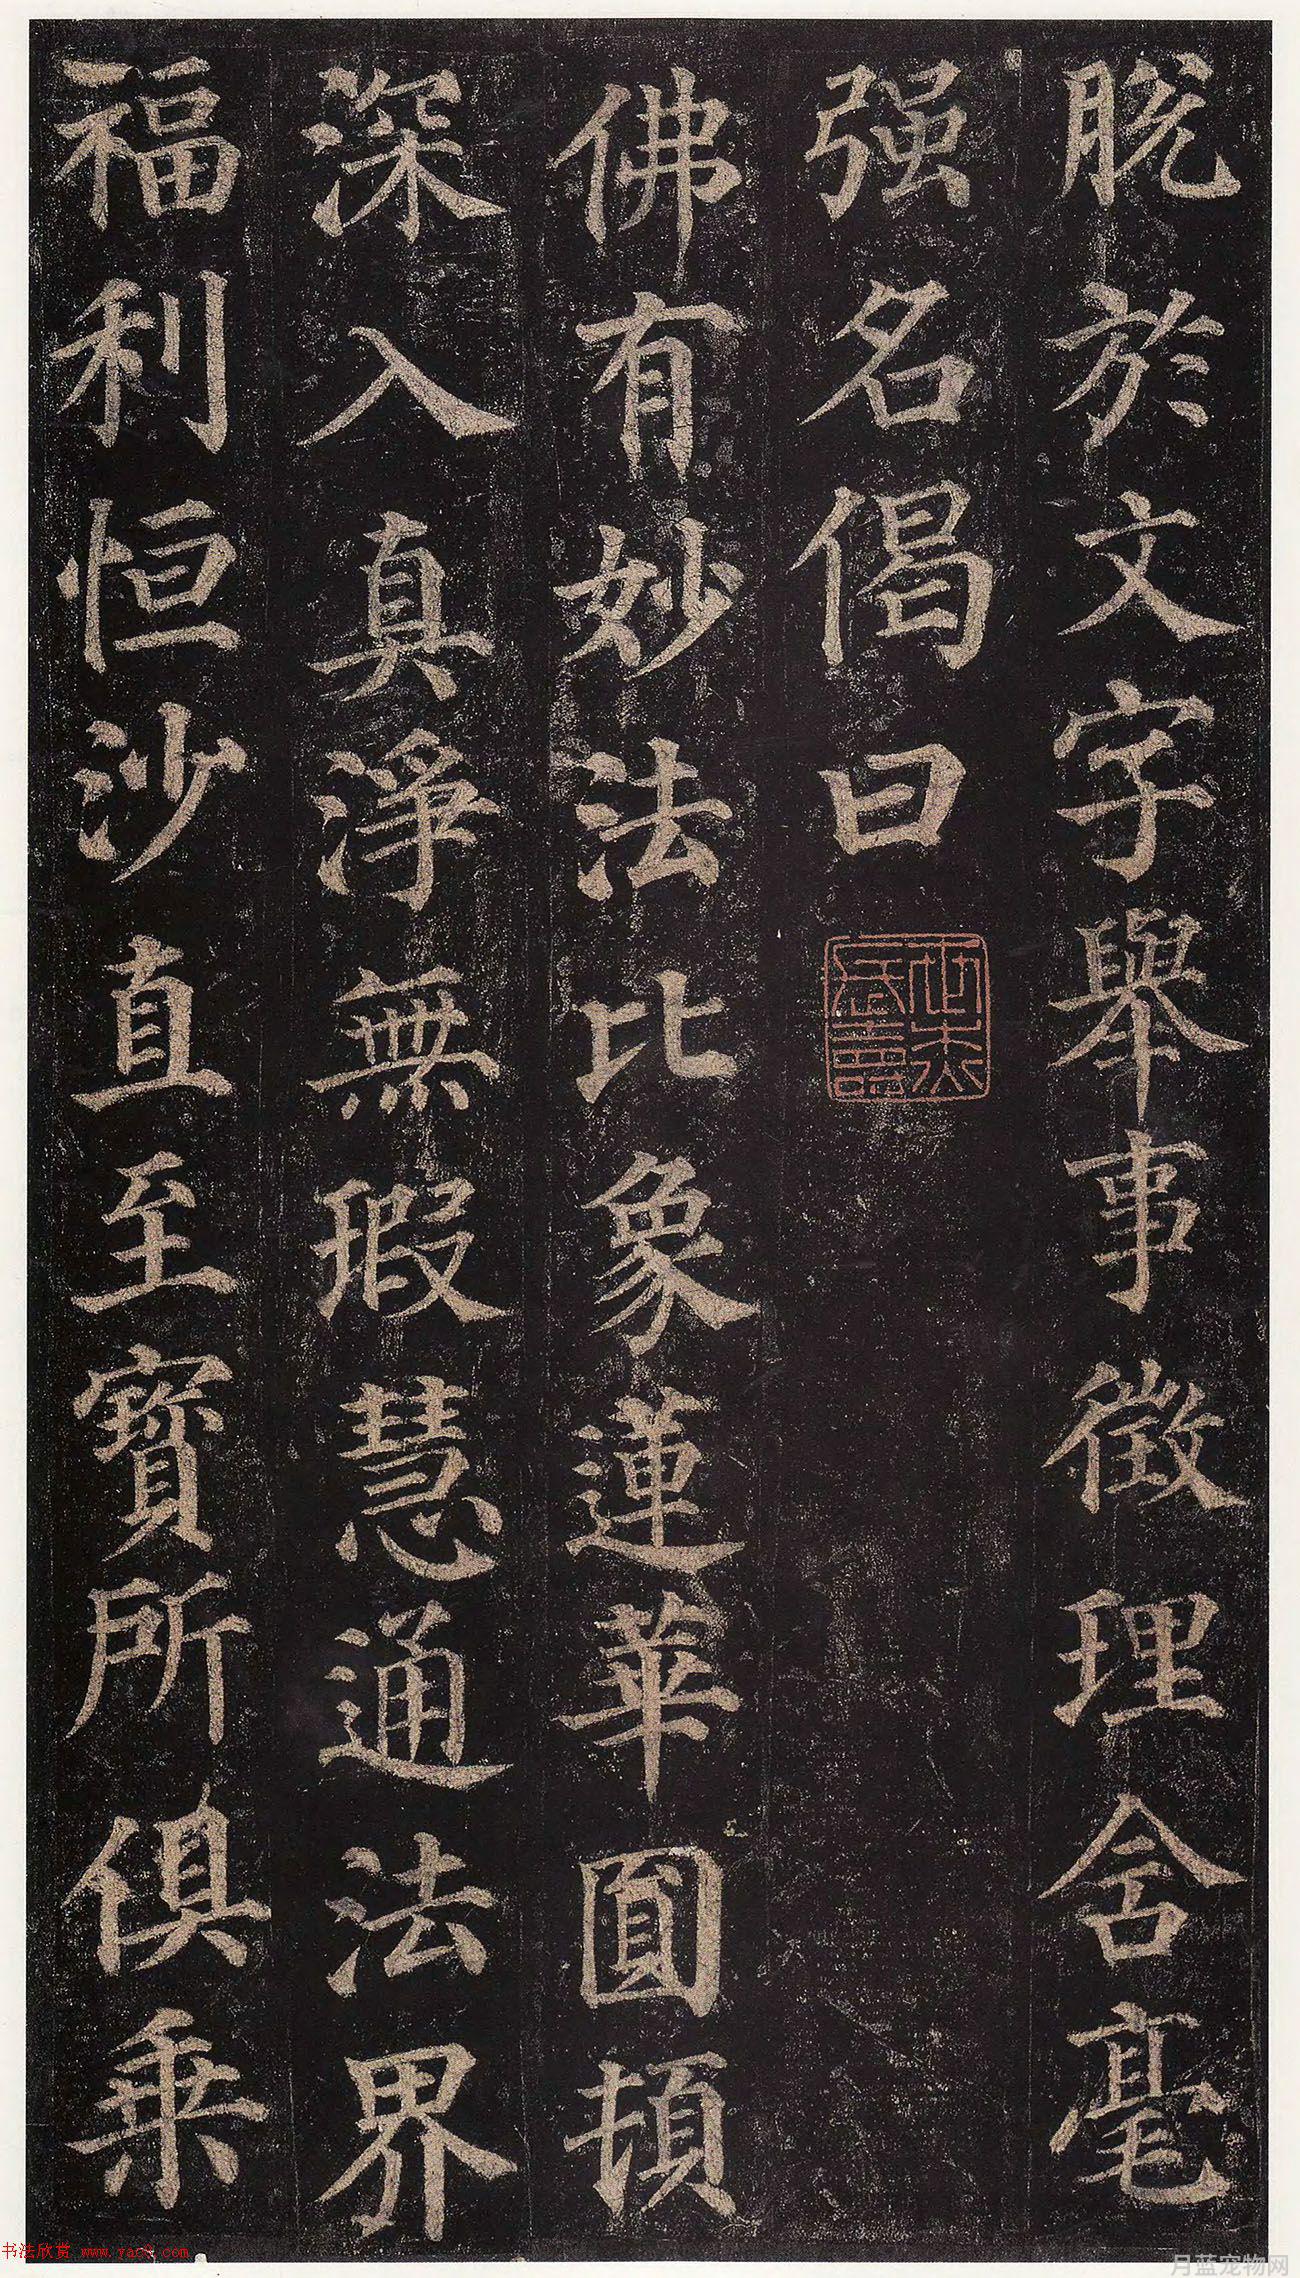 脱於文字舉事徵理含毫
强名偈曰
佛有妙法比象蓮華圓頓
深入真淨無瑕慧通法界
福利恒沙直至寶所俱乗
书法欣赏 www.yac8.com
月蓝宠物网